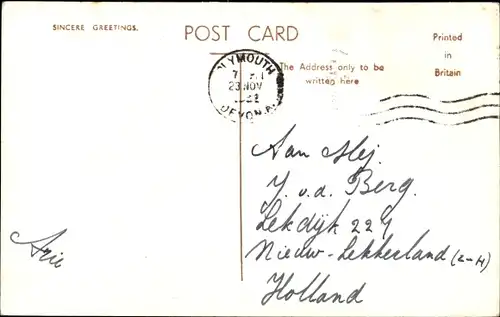 SINCERE GREETINGS.
POST CARD
Printed
in
Britain
The Address only to be
written here
PLYMOUTH
23 NOV
DEVON
Aan Mej.
J. v. d. Berg.
Lekdijk 229
Nieuw-Lekkerland (Z-H)
Holland
Arie